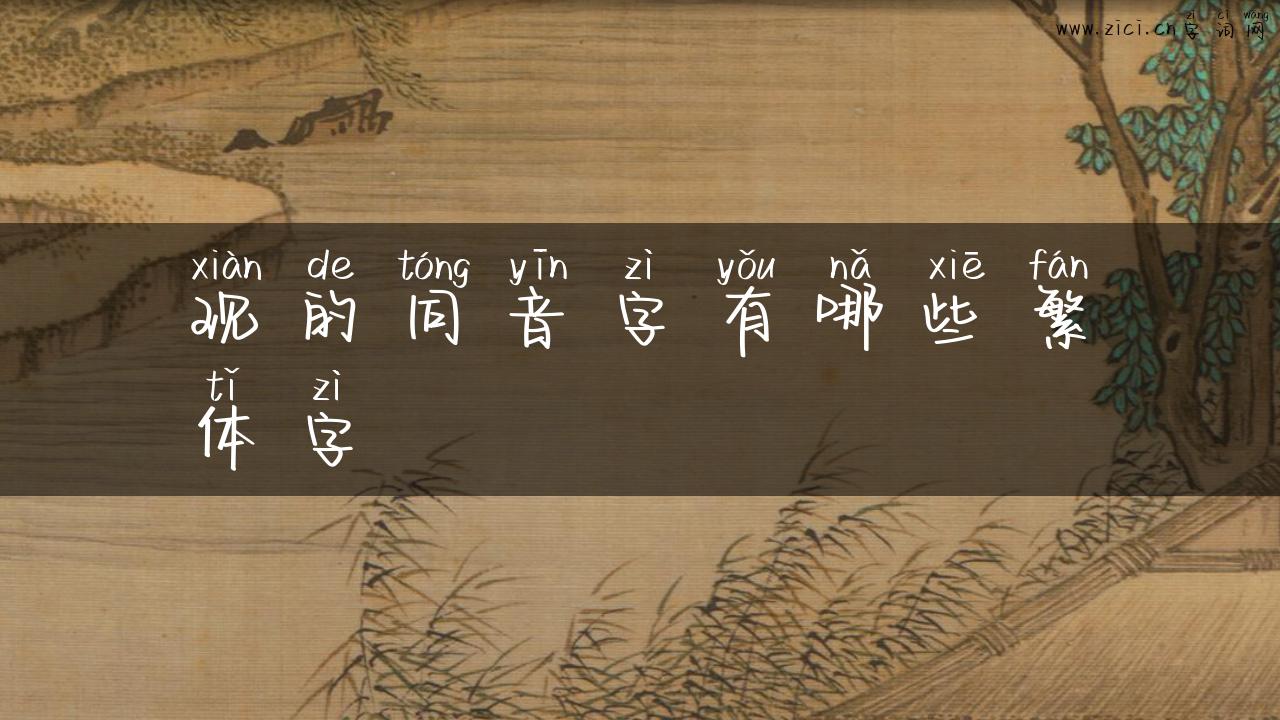 zì cí wǎng
www.zici.cn字词网
xiàn de tóng yīn zì yǒu nǎ xiē fán
现的同音字有哪些繁
tǐ zì
体字